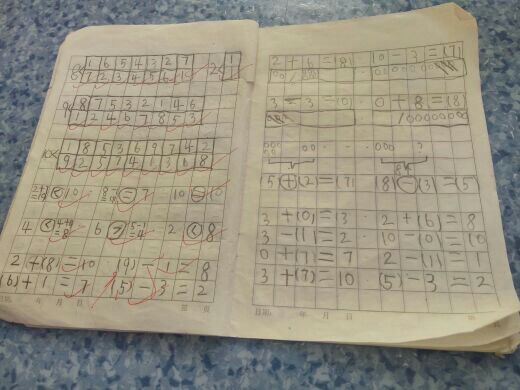 8< 1 6 5 4 3 2 7 2< 1
7 2 3 4 5 6 1
9< 8 7 5 3 2 1 4 6
1 2 4 6 7 8 5 3
10< 1 8 5 3 6 9 7 4 2
9 2 5 7 4 1 3 6 8
< 10 = 7 10 = 10
4 < 6 > 2 < 8
2 + (8) = 10 (9) - 1 = 8
(6) + 1 = 7 (5) - 3 = 2
日期: 年 月 日 第 页
2 + 6 = (8) 10 - 3 = (7)
3 - 3 = (0) 0 + 8 = (8)
8个
(5) + (2) = (7) (8) - (3) = (5)
3 + (0) = 3 2 + (6) = 8
3 - (1) = 2 10 - (0) = 10
0 + (7) = 7 2 - (1) = 1
3 + (7) = 10 (5) - 3 = 2
日期: 年 月 日